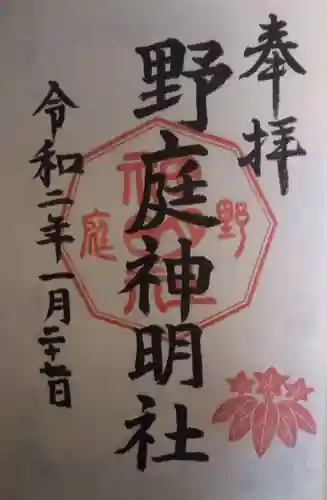 奉拝
野庭神明社
令和二年一月二十七日
野庭